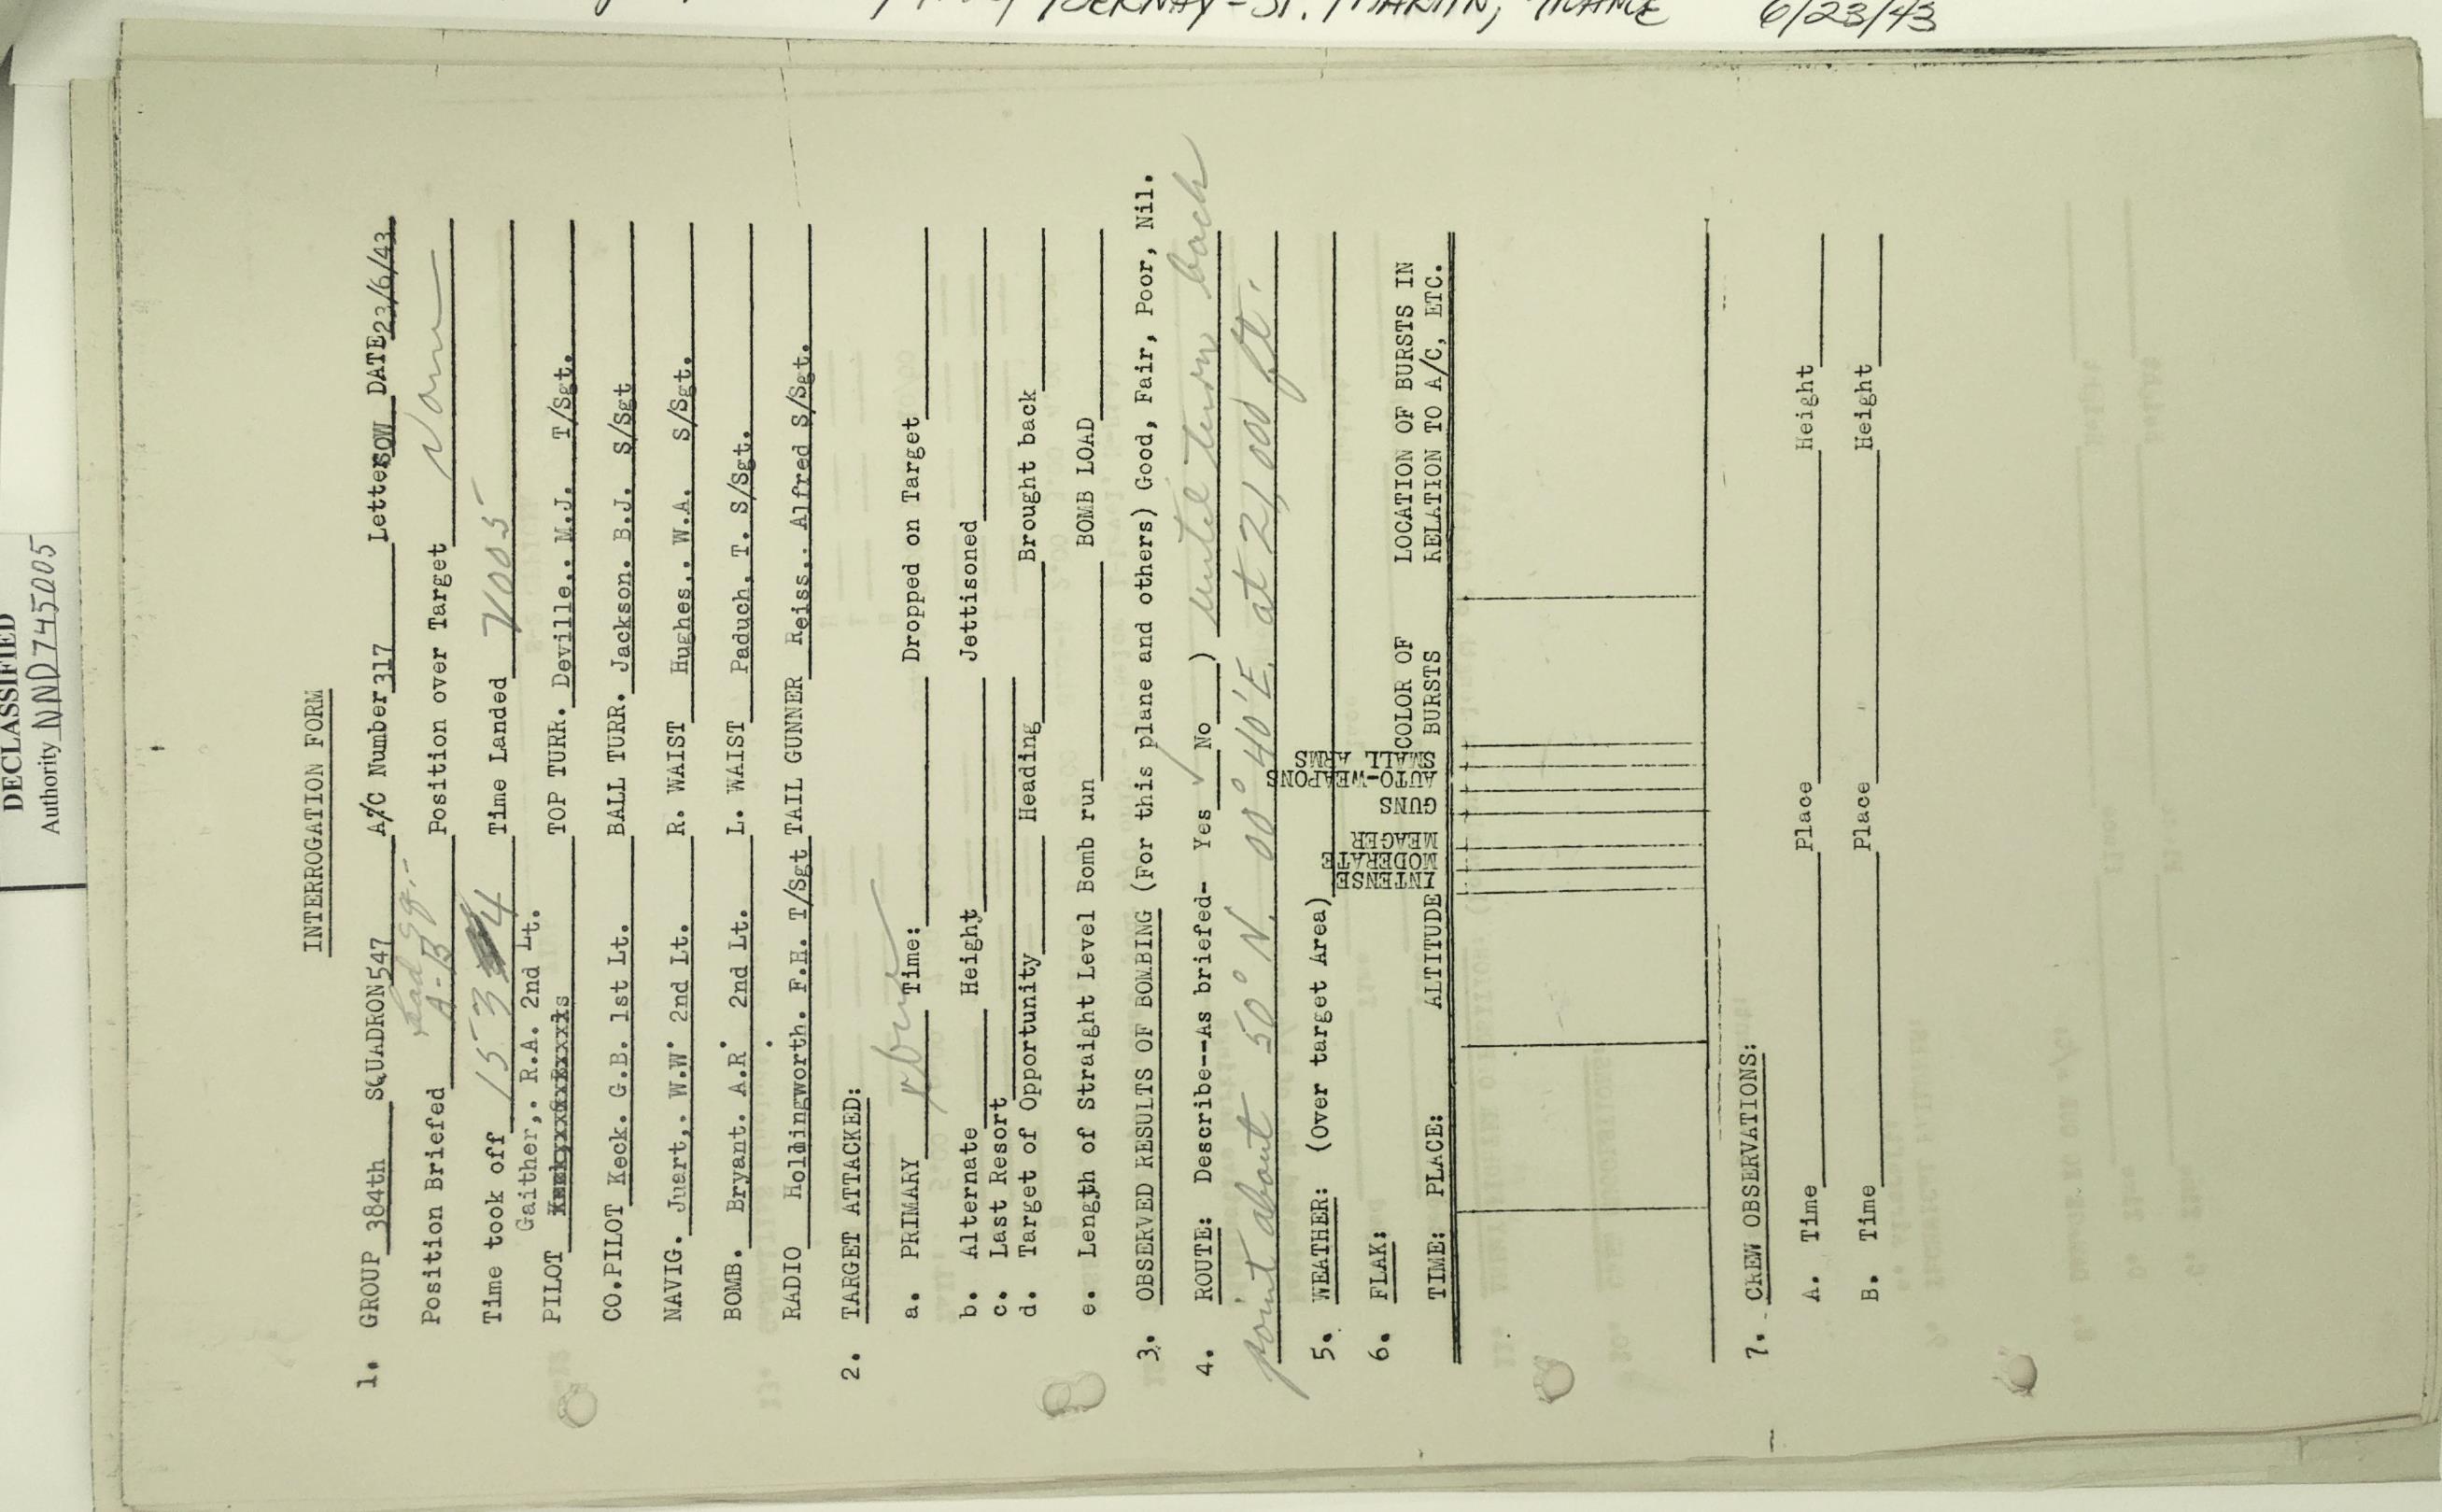 BERNAY - ST. MARTIN, FRANCE 6/23/43
DECLASSIFIED
Authority NND 745005
INTERROGATION FORM
1. GROUP 384th SQUADRON 547 A/C Number 317 Letter SOW DATE 23/6/43
Lead Sq.
Position Briefed A-B Position over Target None
Time took off 1534 Time Landed 2005
Gaither,. R.A. 2nd Lt.
PILOT TOP TURR. Deville.. M.J. T/Sgt.
CO.PILOT Keck. G.B. 1st Lt. BALL TURR. Jackson. B.J. S/Sgt
NAVIG. Juart,. W.W. 2nd Lt. R. WAIST Hughes.. W.A. S/Sgt.
BOMB. Bryant. A.R. 2nd Lt. L. WAIST Paduch. T. S/Sgt.
RADIO Hollingworth. F.H. T/Sgt TAIL GUNNER Reiss.. Alfred S/Sgt.
2. TARGET ATTACKED:
a. PRIMARY None Time: Dropped on Target
b. Alternate Height Jettisoned
c. Last Resort
d. Target of Opportunity Heading Brought back
e. Length of Straight Level Bomb run BOMB LOAD
3. OBSERVED RESULTS OF BOMBING (For this plane and others) Good, Fair, Poor, Nil.
4. ROUTE: Describe--As briefed- Yes ✓ No ) until turn back
point about 50° N. 00° 40' E. at 21,000 ft.
5. WEATHER: (Over target Area)
6. FLAK:
TIME: PLACE: ALTITUDE INTENSE MODERATE MEAGER GUNS AUTO-WEAPONS SMALL ARMS COLOR OF BURSTS LOCATION OF BURSTS IN RELATION TO A/C, ETC.
7. CREW OBSERVATIONS:
A. Time Place Height
B. Time Place Height